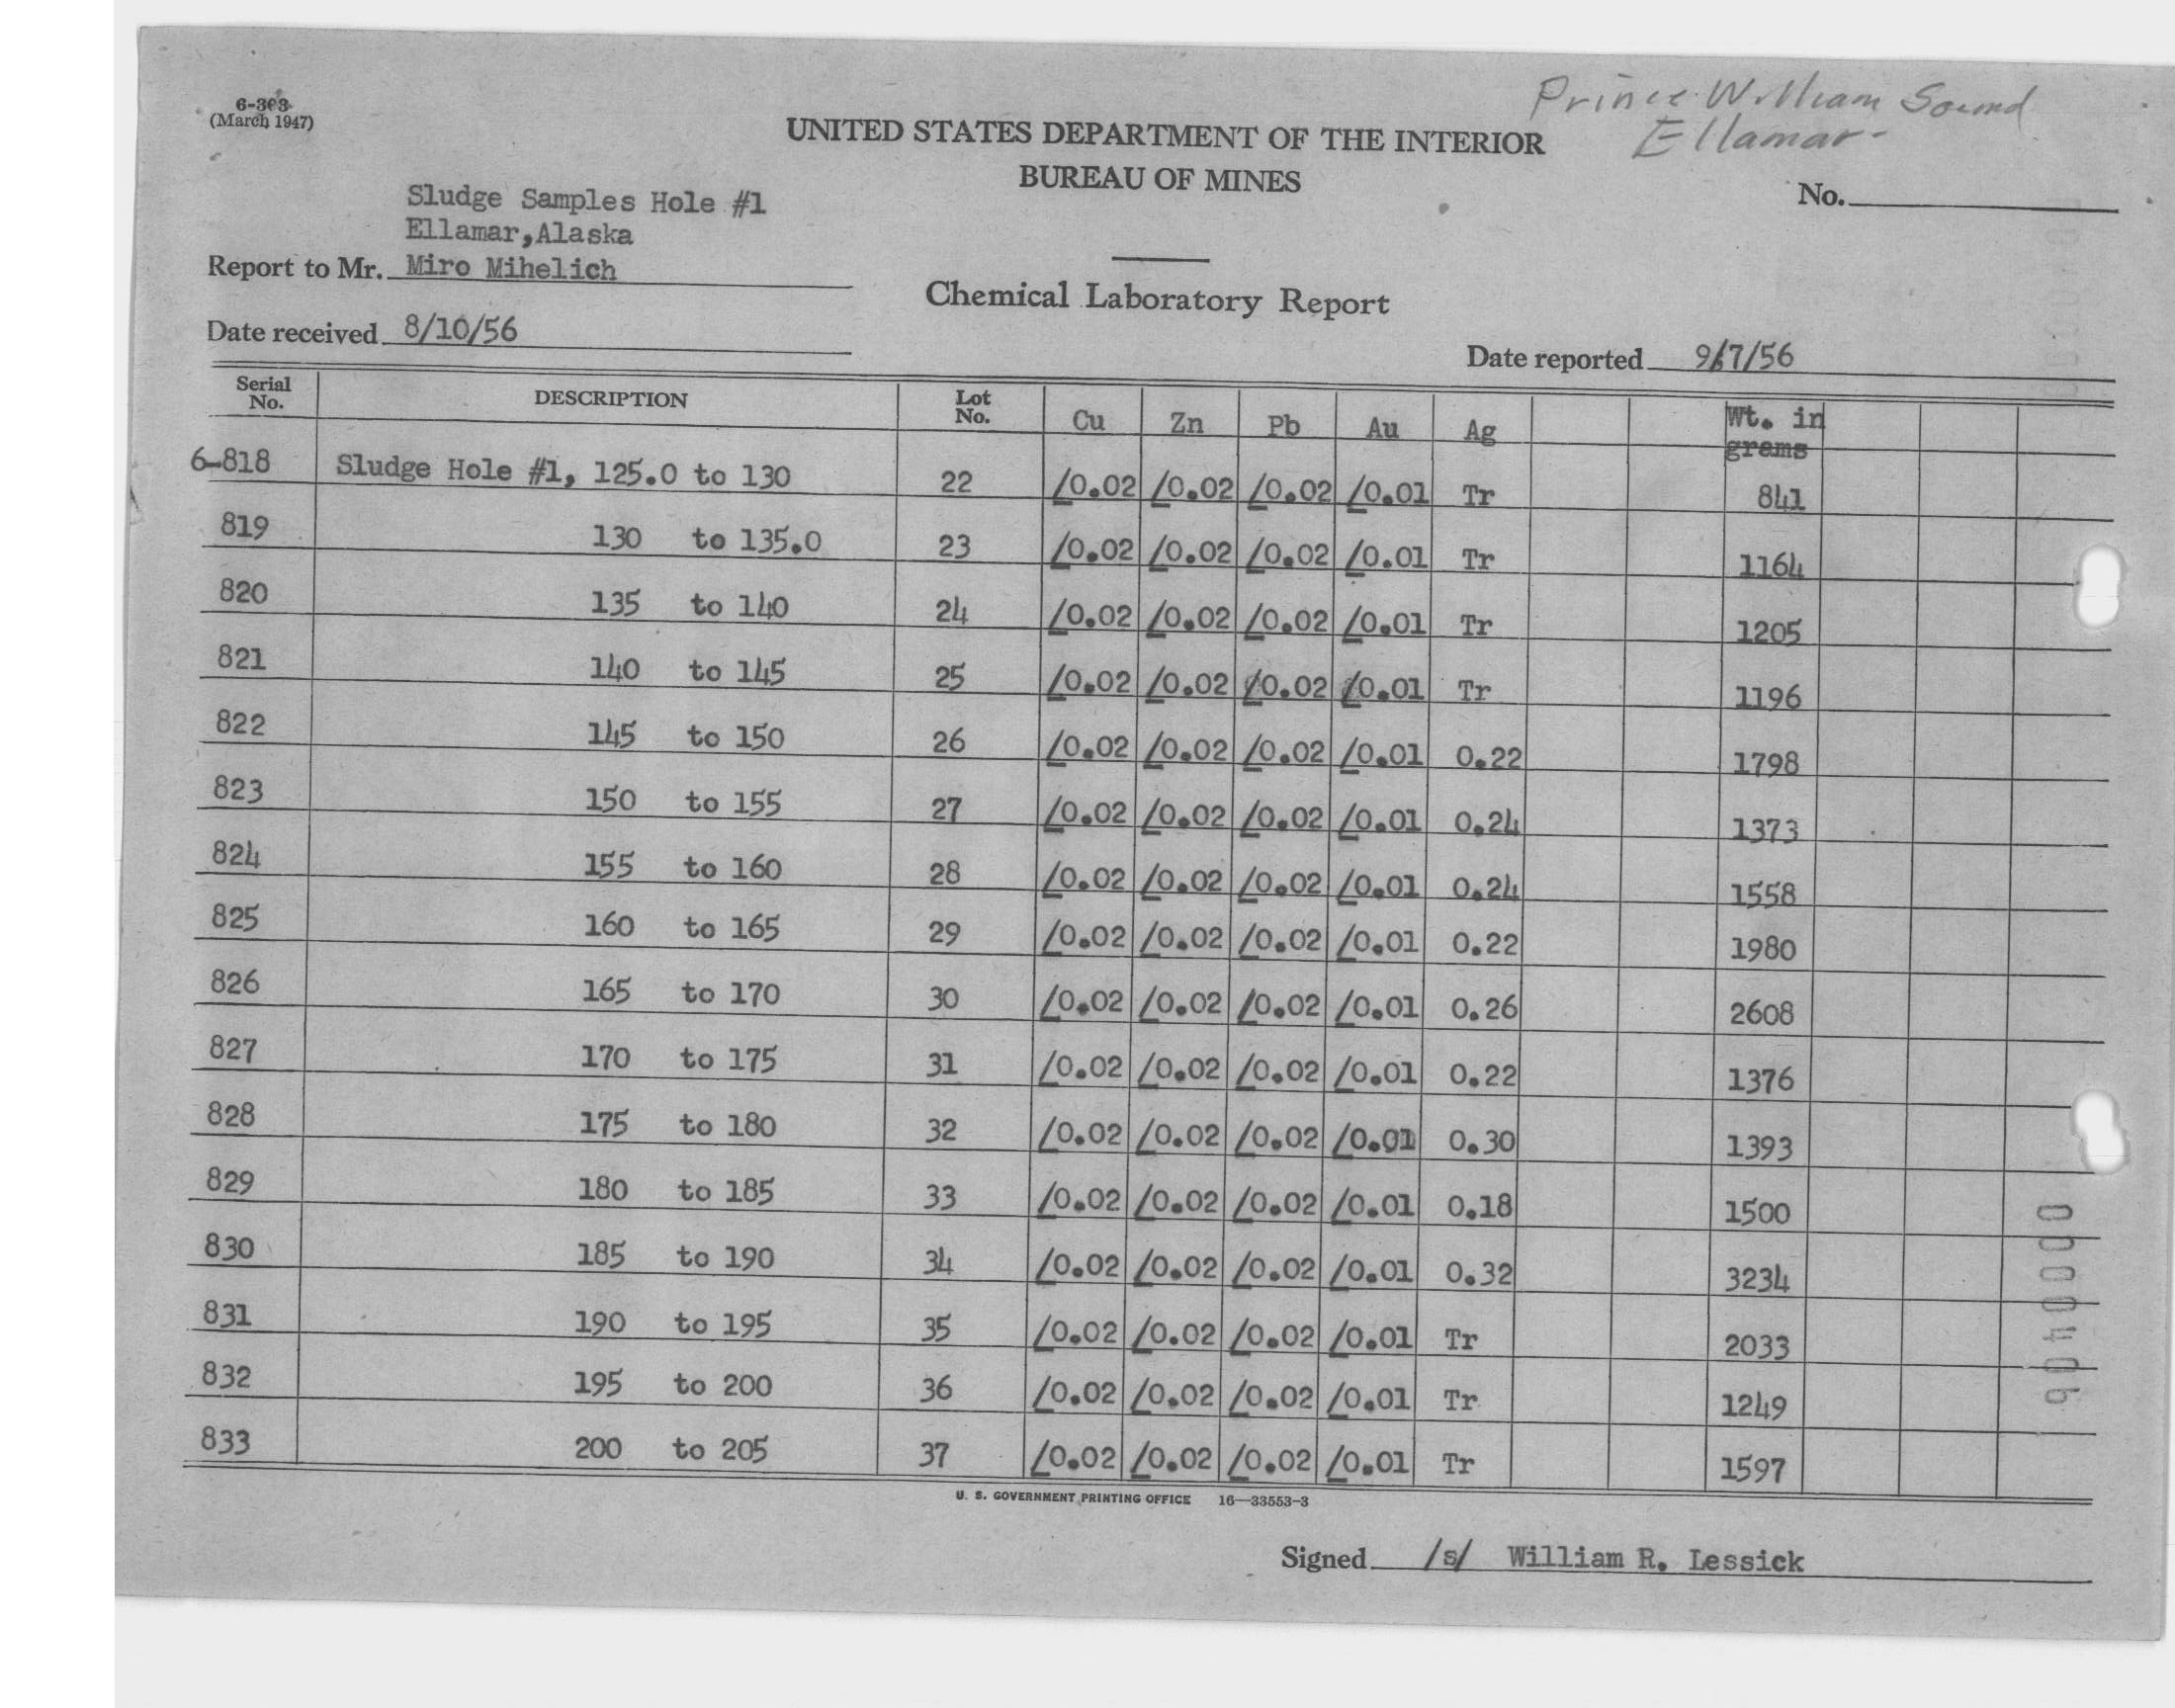 6-303
(March 1947)
Prince William Sound
Ellamar
UNITED STATES DEPARTMENT OF THE INTERIOR
BUREAU OF MINES
No.
Sludge Samples Hole #1
Ellamar,Alaska
Report to Mr. Miro Mihelich
Chemical Laboratory Report
Date received 8/10/56
Date reported 9/7/56
Serial No. DESCRIPTION Lot No. Cu Zn Pb Au Ag Wt. in grams
6-818 Sludge Hole #1, 125.0 to 130 22 <0.02 <0.02 <0.02 <0.01 Tr 841
819 130 to 135.0 23 <0.02 <0.02 <0.02 <0.01 Tr 1164
820 135 to 140 24 <0.02 <0.02 <0.02 <0.01 Tr 1205
821 140 to 145 25 <0.02 <0.02 <0.02 <0.01 Tr 1196
822 145 to 150 26 <0.02 <0.02 <0.02 <0.01 0.22 1798
823 150 to 155 27 <0.02 <0.02 <0.02 <0.01 0.24 1373
824 155 to 160 28 <0.02 <0.02 <0.02 <0.01 0.24 1558
825 160 to 165 29 <0.02 <0.02 <0.02 <0.01 0.22 1980
826 165 to 170 30 <0.02 <0.02 <0.02 <0.01 0.26 2608
827 170 to 175 31 <0.02 <0.02 <0.02 <0.01 0.22 1376
828 175 to 180 32 <0.02 <0.02 <0.02 <0.01 0.30 1393
829 180 to 185 33 <0.02 <0.02 <0.02 <0.01 0.18 1500
830 185 to 190 34 <0.02 <0.02 <0.02 <0.01 0.32 3234
831 190 to 195 35 <0.02 <0.02 <0.02 <0.01 Tr 2033
832 195 to 200 36 <0.02 <0.02 <0.02 <0.01 Tr 1249
833 200 to 205 37 <0.02 <0.02 <0.02 <0.01 Tr 1597
U. S. GOVERNMENT PRINTING OFFICE 16—33553-3
Signed /s/ William R. Lessick